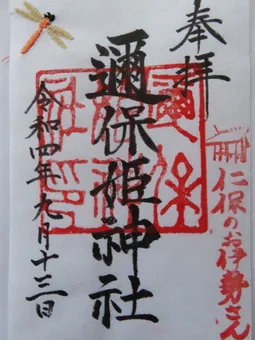 奉拝
邇保姫神社
令和四年九月十三日
仁保のお伊勢さん